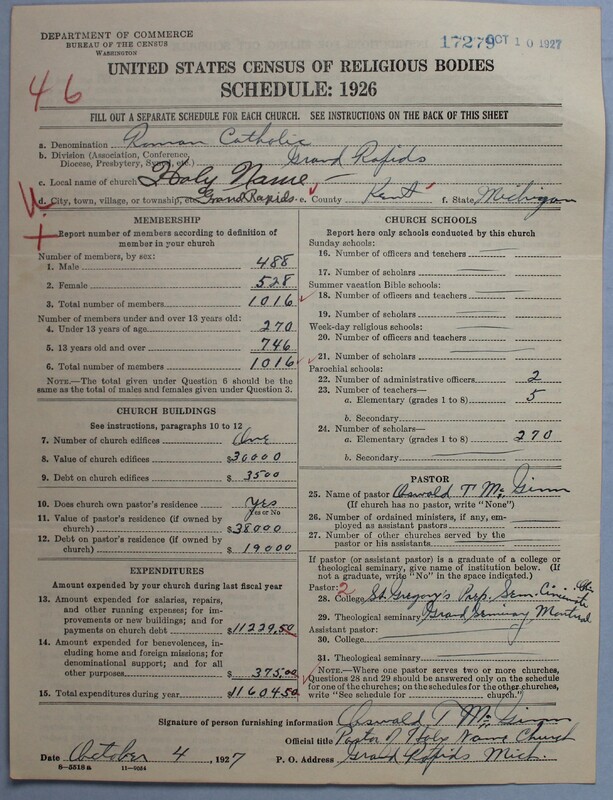 DEPARTMENT OF COMMERCE
BUREAU OF THE CENSUS
WASHINGTON
17279 OCT 10 1927
UNITED STATES CENSUS OF RELIGIOUS BODIES
SCHEDULE: 1926
46
FILL OUT A SEPARATE SCHEDULE FOR EACH CHURCH. SEE INSTRUCTIONS ON THE BACK OF THIS SHEET
a. Denomination Roman Catholic
b. Division (Association, Conference, Diocese, Presbytery, Synod, etc.) Grand Rapids
c. Local name of church Holy Name
d. City, town, village, or township, etc. Grand Rapids e. County Kent f. State Michigan
MEMBERSHIP
Report number of members according to definition of member in your church
Number of members, by sex:
1. Male 488
2. Female 528
3. Total number of members 1016
Number of members under and over 13 years old:
4. Under 13 years of age 270
5. 13 years old and over 746
6. Total number of members 1016
NOTE.—The total given under Question 6 should be the same as the total of males and females given under Question 3.
CHURCH BUILDINGS
See instructions, paragraphs 10 to 12
7. Number of church edifices One
8. Value of church edifices $30000
9. Debt on church edifices $3500
10. Does church own pastor's residence? Yes
Yes or No
11. Value of pastor's residence (if owned by church) $38000
12. Debt on pastor's residence (if owned by church) $19000
EXPENDITURES
Amount expended by your church during last fiscal year
13. Amount expended for salaries, repairs, and other running expenses; for improvements or new buildings; and for payments on church debt $11229.50
14. Amount expended for benevolences, including home and foreign missions; for denominational support; and for all other purposes $375.00
15. Total expenditures during year $11604.50
CHURCH SCHOOLS
Report here only schools conducted by this church
Sunday schools:
16. Number of officers and teachers
17. Number of scholars
Summer vacation Bible schools:
18. Number of officers and teachers
19. Number of scholars
Week-day religious schools:
20. Number of officers and teachers
21. Number of scholars
Parochial schools:
22. Number of administrative officers 2
23. Number of teachers—
a. Elementary (grades 1 to 8) 5
b. Secondary
24. Number of scholars—
a. Elementary (grades 1 to 8) 270
b. Secondary
PASTOR
25. Name of pastor Oswald T. McGinn
(If church has no pastor, write "None")
26. Number of ordained ministers, if any, employed as assistant pastors
27. Number of other churches served by the pastor or his assistants
If pastor (or assistant pastor) is a graduate of a college or theological seminary, give name of institution below. (If not a graduate, write "No" in the space indicated.)
Pastor: 2
28. College St. Gregory's Prep. Sem. Cincinnati Ohio
29. Theological seminary Grand Seminary Montreal
Assistant pastor:
30. College
31. Theological seminary
NOTE.—Where one pastor serves two or more churches, Questions 28 and 29 should be answered only on the schedule for one of the churches; on the schedules for the other churches, write "See schedule for church.")
Signature of person furnishing information Oswald T. McGinn
Official title Pastor of Holy Name Church
Date October 4, 1927 P. O. Address Grand Rapids Mich.
8—5518a 11—9064